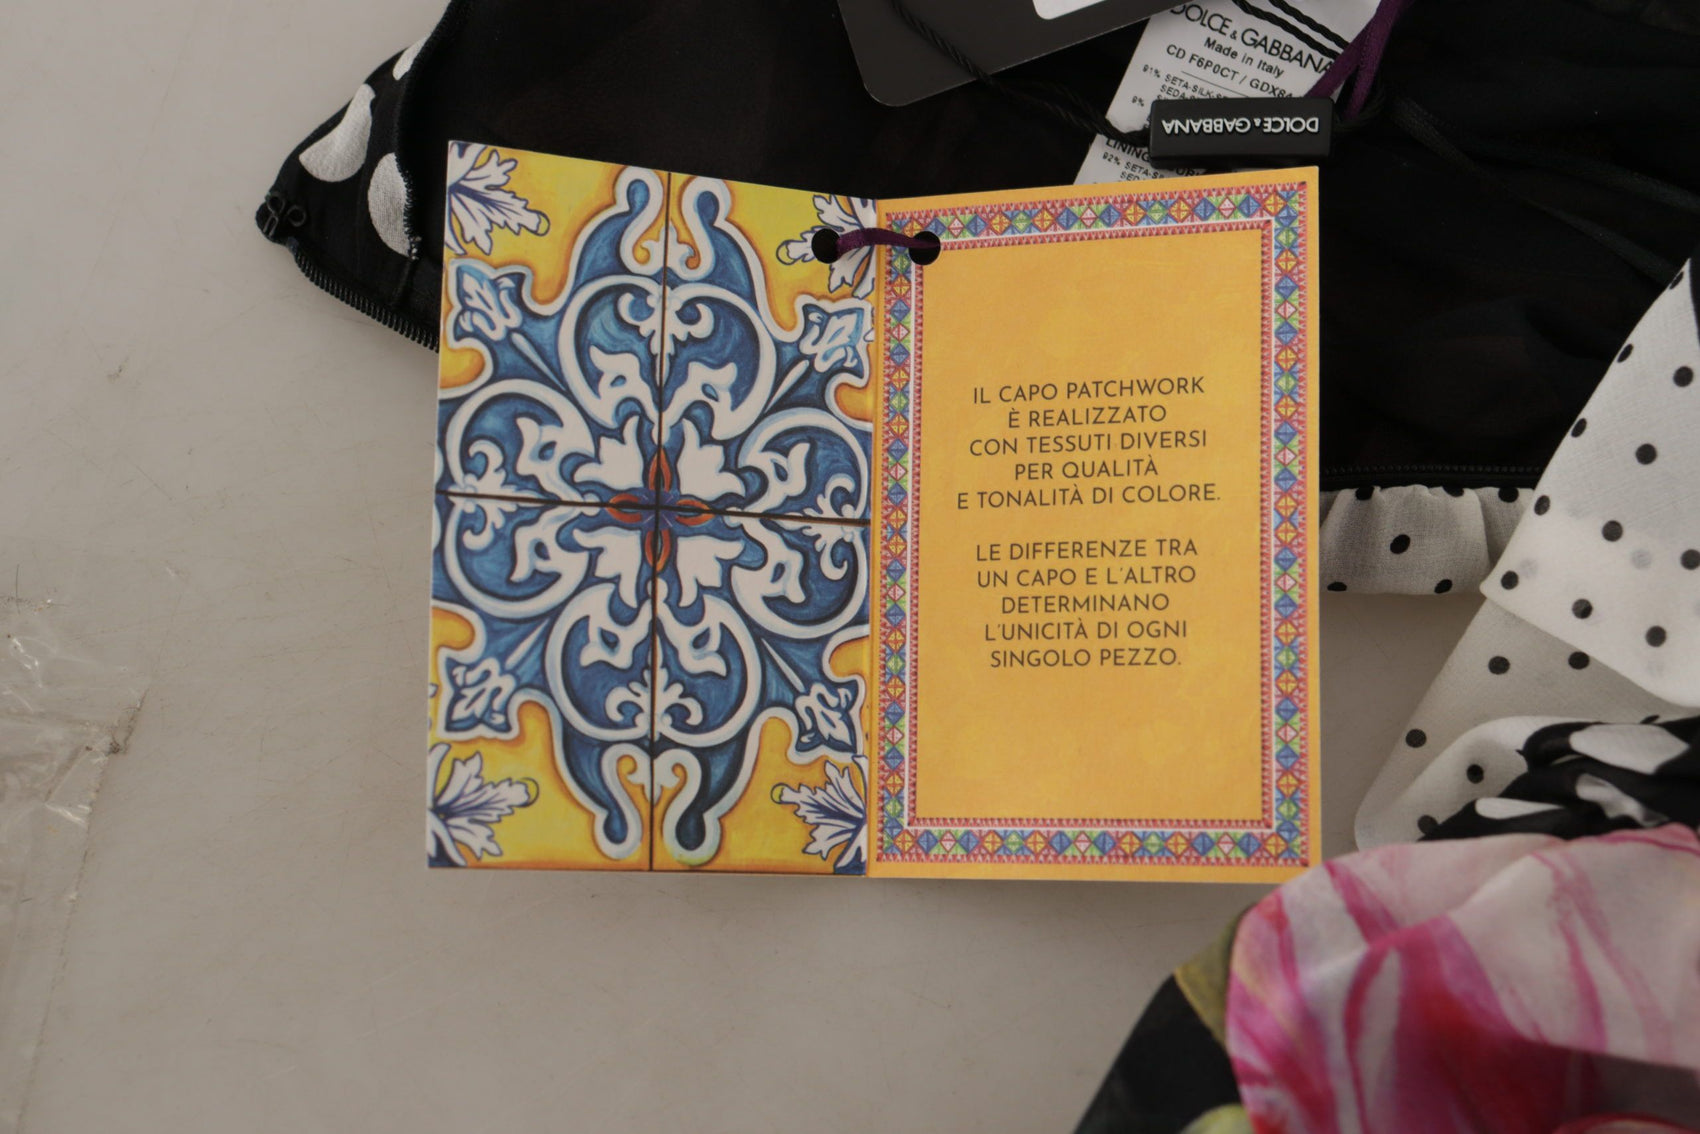 DOLCE & GABBANA
Made in Italy
CD F6P0CT / GDX6
91% SETA-SILK-S
SEDA-S
9%
DOLCE & GABBANA
LINING
92% SETA-S
IL CAPO PATCHWORK
È REALIZZATO
CON TESSUTI DIVERSI
PER QUALITÀ
E TONALITÀ DI COLORE.
LE DIFFERENZE TRA
UN CAPO E L'ALTRO
DETERMINANO
L'UNICITÀ DI OGNI
SINGOLO PEZZO.